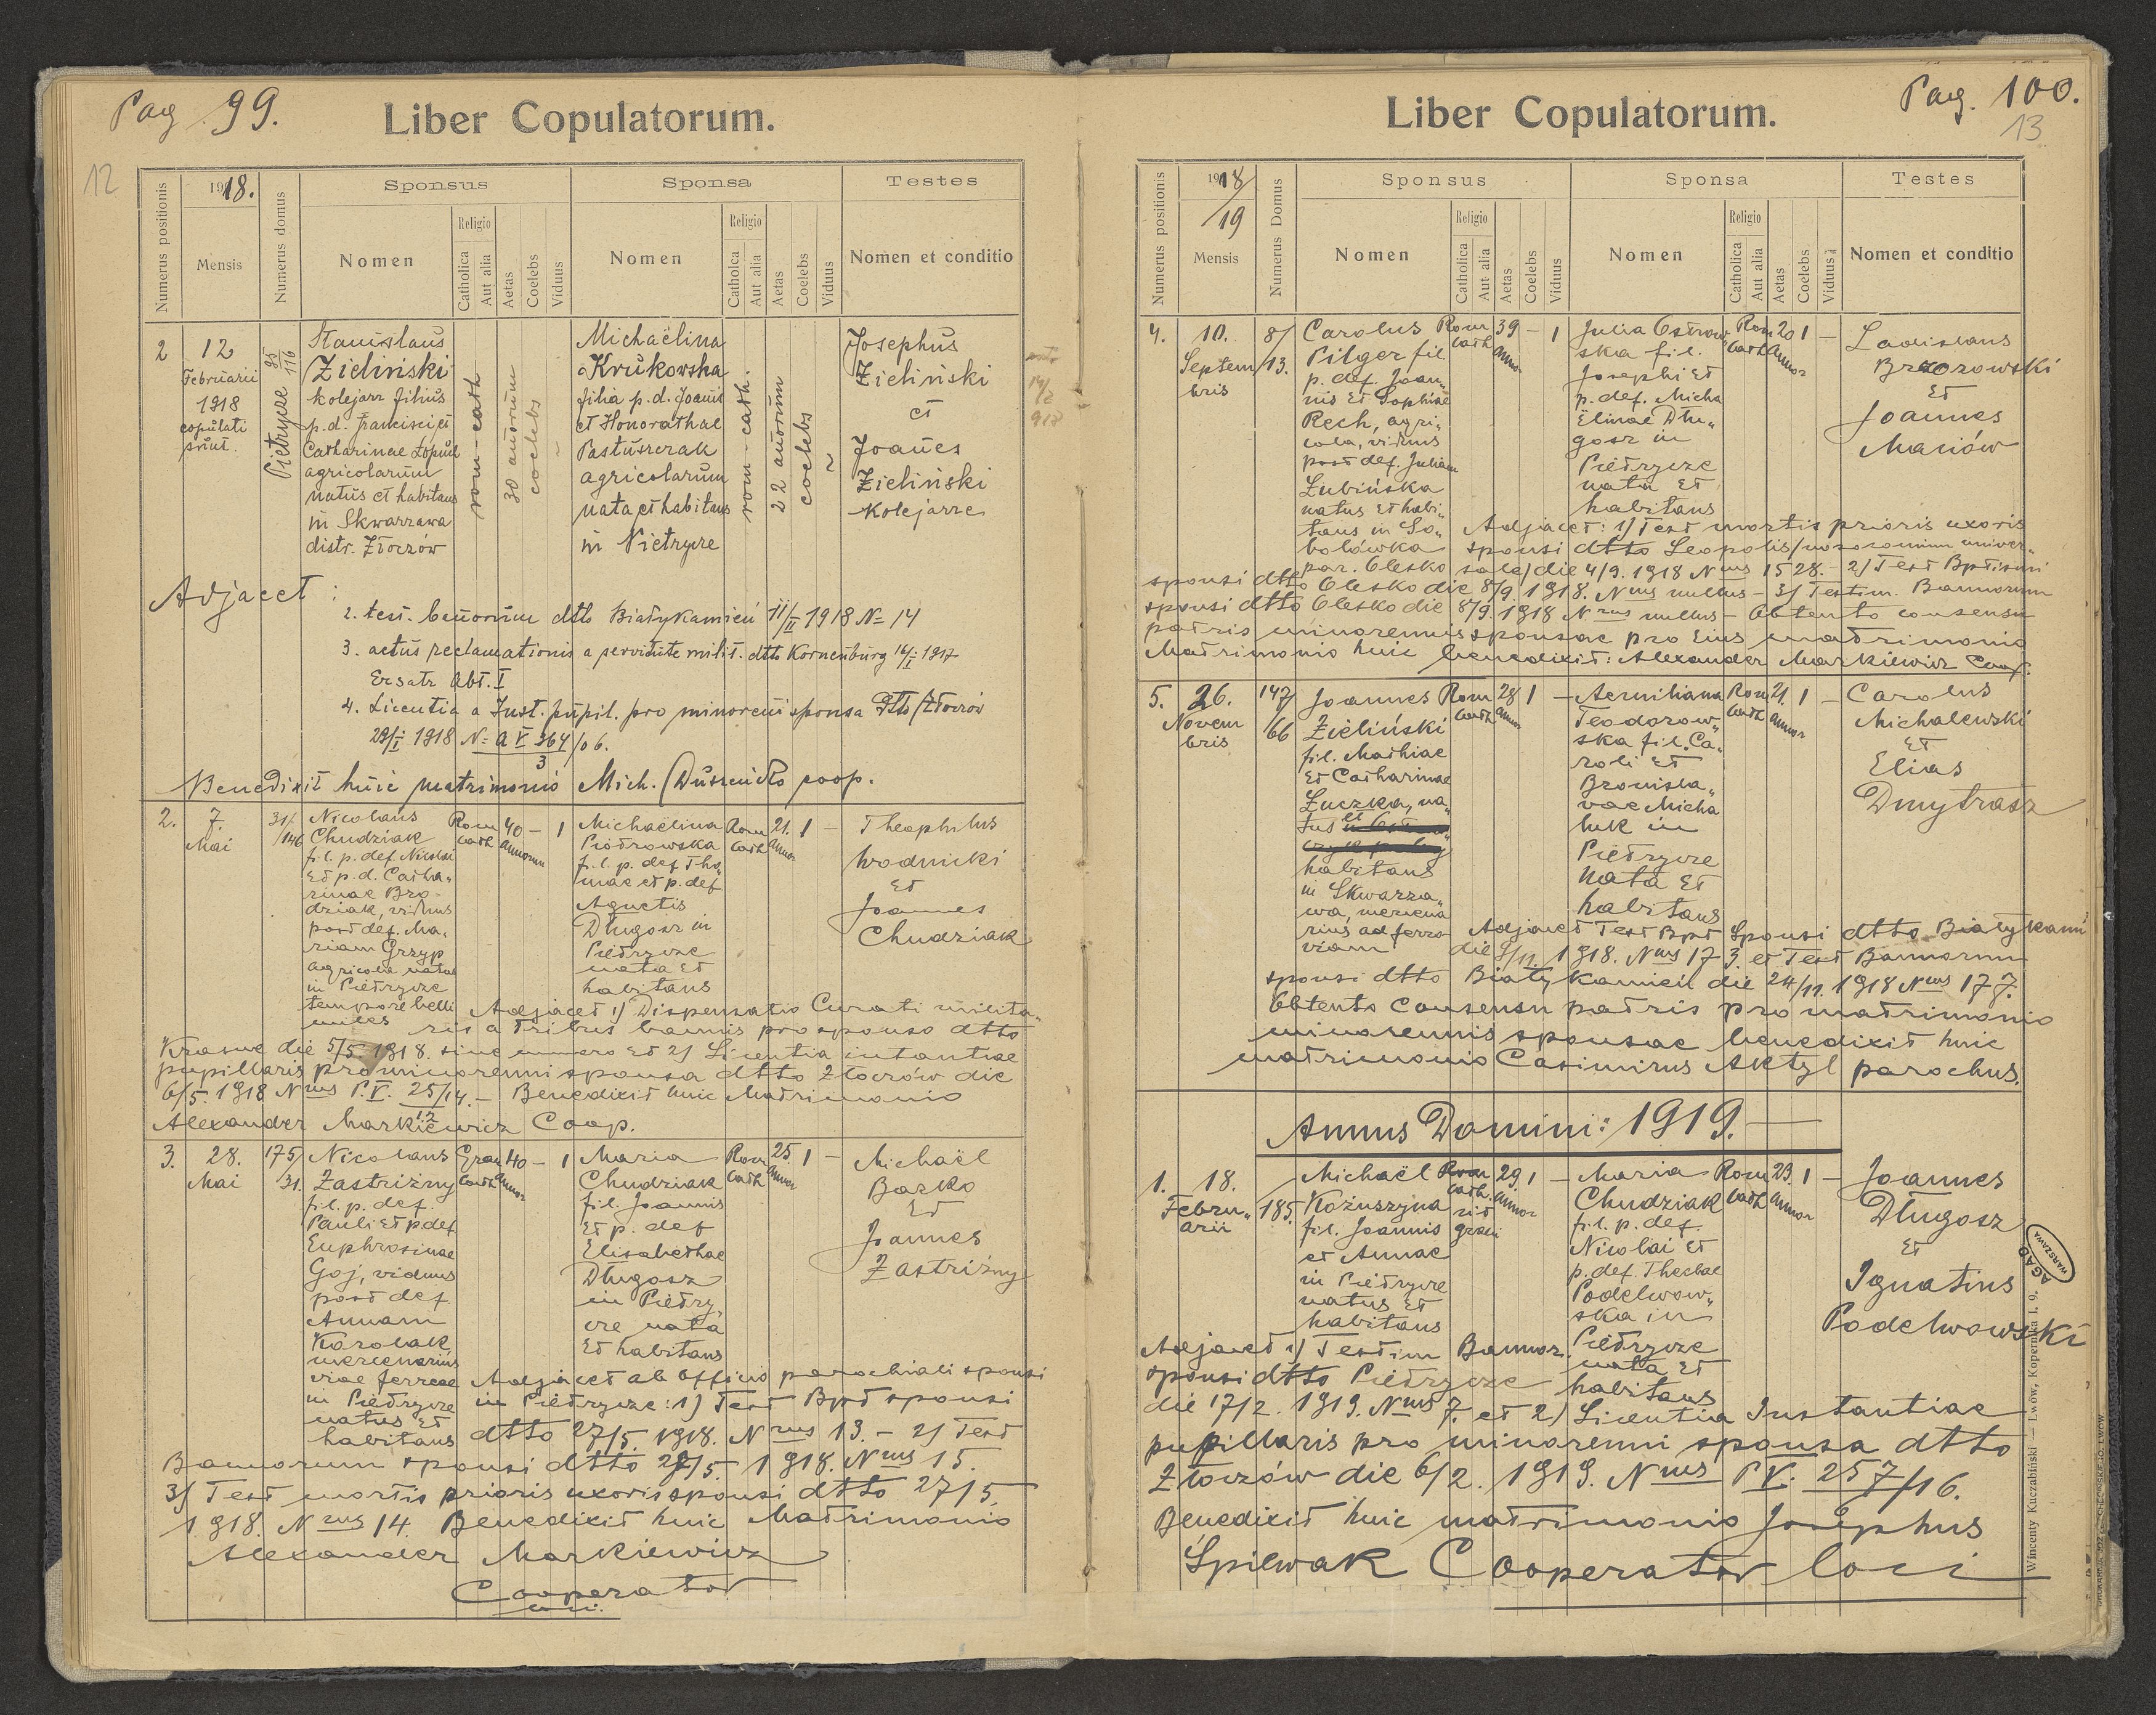 Pag 99.
Liber Copulatorum.
12
Numerus positionis
1918.
Mensis
Numerus domus
Sponsus
Nomen
Religio
Catholica
Aut alia
Aetas
Coelebs
Viduus
Sponsa
Nomen
Religio
Catholca
Aut alia
Aetas
Coelebs
Viduus
Testes
Nomen et conditio
2
12
Februarii
1918
copulati
sunt.
Pietrycze 25/116
Stanislaus
Zieliński
kolejarz filius
p.d. Francisci et
Catharinae
agricolarum
natus et habitans
in Skwarzawa
distr. Złoczów
rom-cath
30 annorum
coelebs
Michaëlina
Krukowska
filia p.d. Joanis
et Honorathae
Pastuszczak
agricolarum
nata et habitans
in Pietrycze
rom-cath.
22 annorum
coelebs
Josephus
Zieliński
et
Joanes
Zieliński
kolejarze
14/2
918
Adjacet:
2. test. banorum dtto Białykamień 11/II 1918 № 14
3. actus reclamationis a servitute milit. dtto Korneuburg 16/I 1917
Ersatz Abt. I
4. Licentia a Inst. pupil. pro minoreni sponsa dtto Złoczów
29/I 1918 № A V 364/06.
3
Benedixit huic matrimonio Mich. coop.
2.
7.
Mai
31/
/146
Nicolaus
Chudziak
fil. p. def. Nicolai
et p.d. Catha„
rinae Bro-
dziak, viduus
post def. Ma„
riam Grzyp
agricola natus
in Pietrycze
tempore belli
miles
Rom
cath
40
annorum
–
1
Michaëlina
Piotrowska
fil. p. def Tho„
mae et p. def
Agnetis
Długosz in
Pietrycze
nata et
habitans
Rom
cath
21.
annor
1
–
Theophilus
Wodnicki
et
Joannes
Chudziak
Adjacet 1) Dispensatio Curati milita„
ris a tribus bannis pro sponso dtto
Krasne die 5/5. 1918. sine numero et 2) Licentia intantiae
pupillaris pro minorenni sponsa dtto Złoczów die
6/5. 1918 Nrus P.V. 25/14. – Benedixit huic Matrimonio
12
Alexander Markiewicz Coop.
3.
28.
Mai
175/
31.
Nicolaus
Zastriżny
fil. p. def.
Pauli et p. def
Euphrosinae
Goj, viduus
post def.
Annam
Karolak
mercenarius
viae ferreae
in Pietrycze
natus et
habitans
Graec
cath
40
annor
–
1
Maria
Chudziak
fil. Joannis
et p. def
Elisabethae
Długosz
in Pietry„
cze nata
et habitans
Rom
cath
25.
annor
1
–
Michaël
Basko
et
Joannes
Zastriżny
Adjacet ab officio parochiali sponsi
in Pietrycze: 1) Test Bpt sponsi
dtto 27/5. 1918. Nrus 13. – 2) Test
Bannorum sponsi dtto 28/5. 1918. Nrus 15.
3) Test mortis prioris uxoris sponsi dtto 27/5.
1918. Nrus 14. Benedixit huic Matrimonio
Alexander Markiewicz
Cooperator
Pag. 100.
Liber Copulatorum.
13
Numerus positionis
1918/
/19
Mensis
Numerus Domus
Sponsus
Nomen
Religio
Catholica
Aut alia
Aetas
Coelebs
Viduus
Sponsa
Nomen
Religio
Catholica
Aut alia
Aetas
Coelebs
Viduus
Testes
Nomen et conditio
4.
10.
Septem
bris
8/
/13.
Carolus
Pilger fil
p. def. Joan„
nis et Sophiae
Rech, agri„
cola, viduus
post def. Juliam
Lubińska
natus et habi„
tans in So„
bolówka
par. Olesko
Rom
cath
39
annor
–
1
Julia Ostrow
ska fil.
Josephi et
p. def. Micha
ëlinae Dłu„
gosz in
Pietrycze
nata et
habitans
Rom
cath
20
annor
1
–
Ladislaus
Brzozowski
et
Joannes
Mariów
Adjacet: 1) Test mortis prioris uxoris
sponsi dtto Leopolis/nosocomium univer„
sale/die 4/9. 1918 Nrus 1528. – 2) Test Bptismi
sponsi dtto Olesko die 8/9. 1918. Nrus nullus – 3) Testim. Bannorum
sponsi dtto Olesko die 8/9. 1918 Nrus nullus – Obtento consensu
patris minorennis sponsae pro eius matrimonio
Matrimonio huic benedixit: Alexander Markiewicz Coop.
5.
26.
Novem
bris
147/
/66
Joannes
Zieliński
fil. Mathiae
et Catharinae
Łuczka, na„
tus et
habitans
in Skwarza„
wa, mercena
rius ad ferro
viam
Rom
cath
28
annor
1
–
Aemiliana
Teodorow„
ska fil. Ca„
roli et
Bronisla„
vae Micha
luk in
Pietrycze
nata et
habitans
Rom
cath
21.
annor
1
–
Carolus
Michalewski
et
Elias
Dmytrasz
Adjacet Test Bpt Sponsi dtto Białykami
die 5/11. 1918. Nrus 173. et Test Bannorum
sponsi dtto Białykamień die 24/11. 1918 Nrus 177.
Obtento consensu patris pro matrimonio
minorennis sponsae benedixit huic
matrimonio Casimirus Aktyl parochus.
Annus Domini: 1919.
1.
18.
Febru„
arii
185.
Michaël
Kożuszyna
fil. Joannis
et Annae
in Pietrycze
natus et
habitans
Rom
cath.
rit
graeci
29
annor
1
–
Maria
Chudziak
fil. p. def.
Nicolai et
p. def. Theclae
Podelwow„
ska in
Pietrycze
nata et
habitans
Rom
cath
23.
annor
1
–
Joannes
Długosz
et
Ignatius
Podelwowski
Adjacet 1) Testim Bannor.
sponsi dtto Pietrycze
die 17/2. 1919. Nrus 7. et 2) Licentia Instantiae
pupillaris pro minorenni sponsa dtto
Złoczów die 6/2. 1919. Nrus P V. 257/16.
Benedixit huic matrimonio Josephus
Śpiewak Cooperator loci
AGAD
WARSZAWA
Wincenty Kuczabiński — Lwów, Kopernika l. 9.